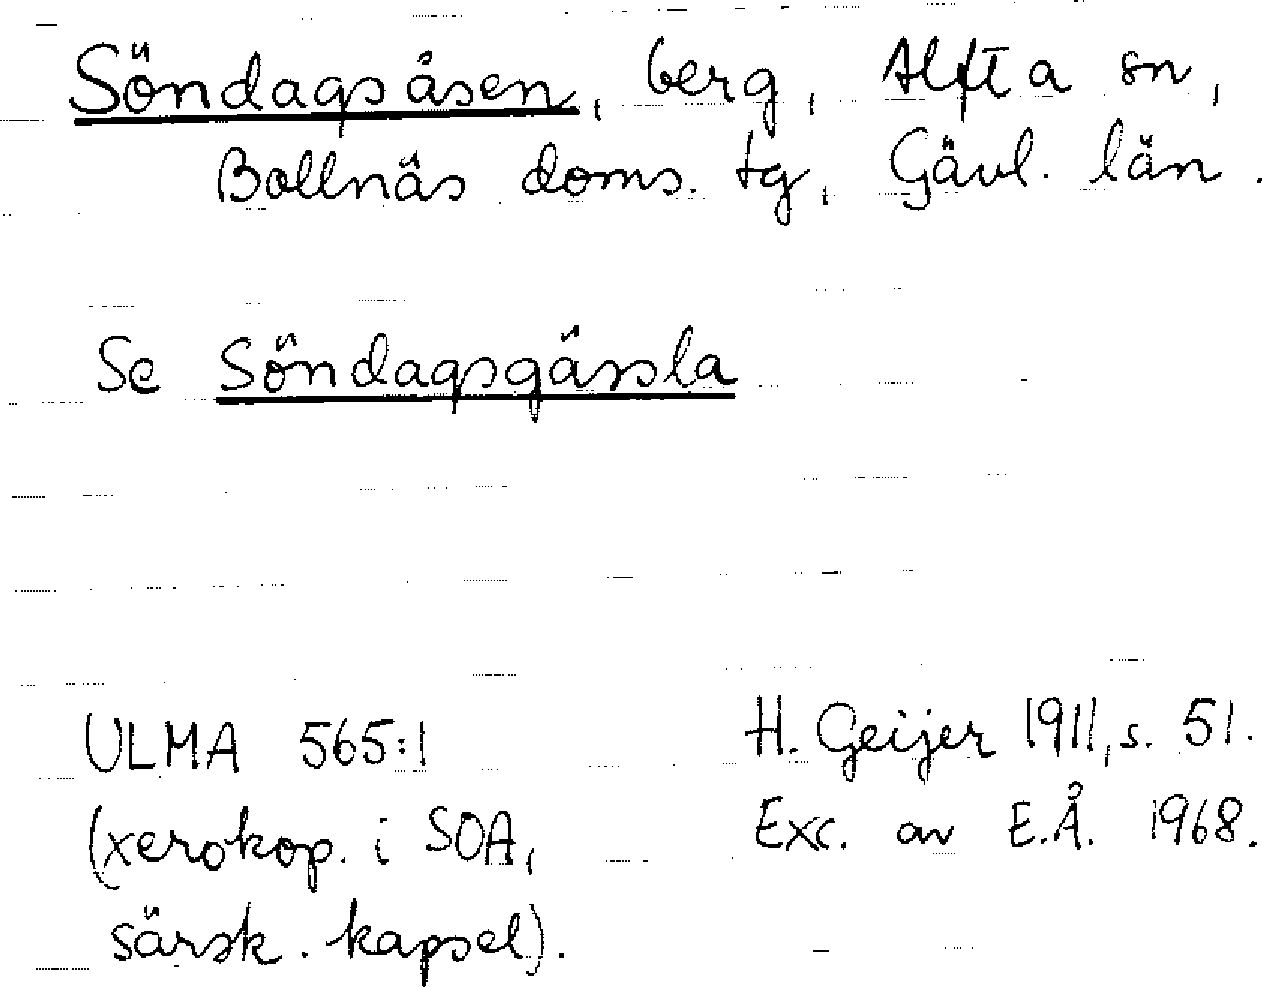 Söndagsåsen, berg, Alfta sn,
Bollnäs doms. tg, Gävl. län.
Se Söndagsgässla
ULMA 565:1
(xerokop. i SOA,
särsk. kapsel).
H. Geijer 1911, s. 51.
Exc. av E.Å. 1968.